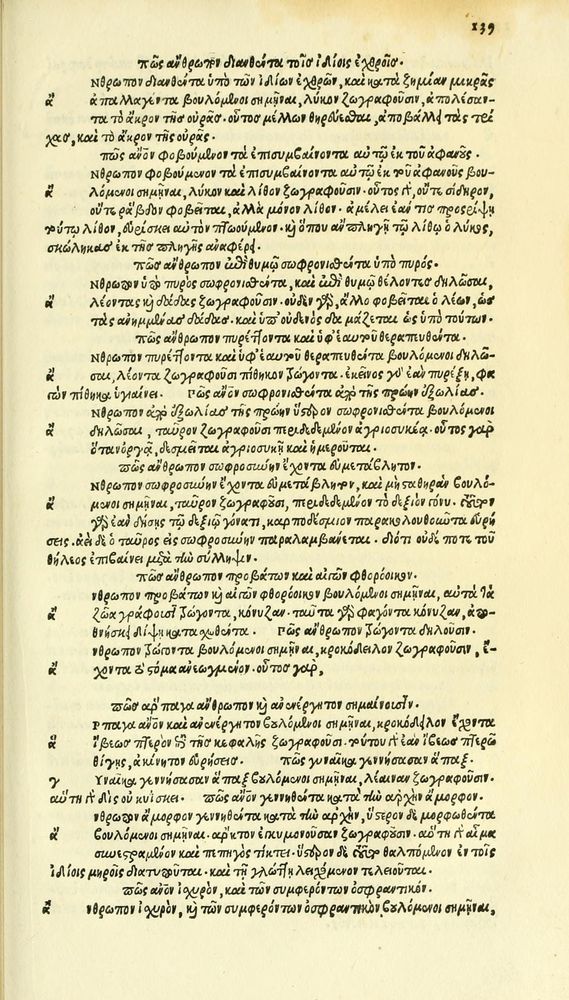 139
πῶς ἄνθρωπον διανθέντα τοῖς ἰδίοις ἐχθροῖς.
Νθρωπον διανθέντα ὑπὸ τῶν ἰδίων ἐχθρῶν, καὶ κατὰ ζημίαν μικρᾶς
ἄ ἀπαλλαγέντα βουλόμενοι σημῆναι, λύκον ζωγραφοῦσιν, ἀπολέσαν-
τα τὸ ἄκρον τῆς οὐρᾶς. οὗτος μέλλων θηρεύεσθαι, ἀποβάλλει τὰς τρί
χας, καὶ τὸ ἄκρον τῆς οὐρᾶς.
πῶς ἄνον φοβούμενον τὰ ἐπισυμβαίνοντα αὐτῷ ἐκ τοῦ ἀφανοῦς.
Νθρωπον φοβούμενον τὰ ἐπισυμβαίνοντα αὐτῷ ἐκ τοῦ ἀφανοῦς βου-
ἄ λόμενοι σημῆναι, λύκον καὶ λίθον ζωγραφοῦσιν. οὗτος δὲ, οὔτε σίδηρον,
οὔτε ῥάβδον φοβεῖται, ἀλλὰ μόνον λίθον. ἀμέλει ἐάν τις προσρίψῃ
τούτῳ λίθον, εὑρίσκει αὐτὸν πτοούμενον. καὶ ὅπου ἂν πληγῇ τῷ λίθῳ ὁ λύκος,
σκώληκας ἐκ τῆς πληγῆς ἀναφέρει.
πῶς ἄνθρωπον ἐπὶ θυμῷ σωφρονισθέντα ὑπὸ πυρός.
Νθρωπον ὑπὸ πυρὸς σωφρονισθέντα, καὶ ἐπὶ θυμῷ θέλοντες δηλῶσαι,
ἄ λέοντας καὶ δᾷδας ζωγραφοῦσιν. οὐδὲν γὰρ, ἄλλο φοβεῖται ὁ λέων, ὡς
τὰς ἀνημμένας δᾷδας. καὶ ὑπ' οὐδενὸς δαμάζεται ὡς ὑπὸ τούτων.
πῶς ἄνθρωπον πυρέττοντα καὶ ὑφ' ἑαυτοῦ θεραπευθέντα.
Νθρωπον πυρέττοντα καὶ ὑφ' ἑαυτοῦ θεραπευθέντα βουλόμενοι δηλῶ-
ἄ σαι, λέοντα ζωγραφοῦσι πίθηκον τρώγοντα. ἐκεῖνος γὸ ἐὰν πυρέξῃ, φα
γὼν πίθηκα ὑγιαίνει. Πῶς ἄνον σωφρονισθέντα ἀπὸ τῆς πρώην ἐξωλίας.
Νθρωπον ἀπὸ ἐξωλίας τῆς πρώην ὕστερον σωφρονισθέντα βουλόμενοι
ἄ δηλῶσαι, ταῦρον ζωγραφοῦσι περιδεδεμένον ἀγριοσυκέᾳ. οὗτος γὰρ
ὅταν ὀργᾷ, δεσμεῖται ἀγριοσυκῇ καὶ ἡμεροῦται.
πῶς ἄνθρωπον σωφροσύνην ἔχοντα εὐμετάβλητον.
Νθρωπον σωφροσύνην ἔχοντα εὐμετάβλητον, καὶ μὴ σταθηρὰν βουλό-
ἄ μενοι σημῆναι, ταῦρον ζωγραφοῦσι, περιδεδεμένον τὸ δεξιὸν γόνυ. τοῦτον
γὰρ ἐὰν δήσῃς τῷ δεξιῷ γόνατι, καρποδέσμιον παρακολουθοῦντα εὑρή
σεις. ἀεὶ δὲ ὁ ταῦρος εἰς σωφροσύνην παραλαμβάνεται. διότι οὐδέ ποτε τοῦ
θήλεος ἐπιβαίνει μετὰ τὴν σύλληψιν.
πῶς ἄνθρωπον προβάτων καὶ αἰγῶν φθορόοικον.
νθρωπον προβάτων καὶ αἰγῶν φθορόοικον βουλόμενοι σημῆναι, αὐτὰ τὰ
ἄ ζῶα γράφουσι τρώγοντα, κόνυζαν. ταῦτα γὰρ φαγόντα κόνυζαν, ἀπο-
θνήσκει δίψῃ κατασχεθέντα. Πῶς ἄνθρωπον τρώγοντα δηλοῦσιν.
νθρωπον τρώγοντα βουλόμενοι σημῆναι, κροκόδειλον ζωγραφοῦσιν, ἔ-
ἄ χοντα τὸ στόμα ἀνεωγμένον. οὗτος γὰρ,
πῶς ἅρπαγα ἄνθρωπον καὶ ἀνενέργητον σημαίνουσιν.
Ρπαγα ἄνον καὶ ἀνενέργητον βουλόμενοι σημῆναι, κροκόδειλον ἔχοντα
ἅ ἴβεως πτερὸν ἐπὶ τῆς κεφαλῆς ζωγραφοῦσι. τούτου δὲ ἐὰν ἴβεως πτερῷ
θίγῃς, ἀκίνητον εὑρήσεις. πῶς γυναῖκα γεννήσασαν ἅπαξ.
γ Υναῖκα γεννήσασαν ἅπαξ βουλόμενοι σημῆναι, λέαιναν ζωγραφοῦσιν.
αὕτη δὲ δὶς οὐ κυΐσκει. πῶς ἄνον γεννηθέντα κατὰ τὴν ἀρχὴν ἄμορφον.
νθρωπον ἄμορφον γεννηθέντα κατὰ τὴν ἀρχὴν, ὕστερον δὲ μορφωθέντα
ἄ βουλόμενοι σημῆναι. ἄρκτον ἐγκυμονοῦσαν ζωγραφοῦσιν. αὕτη δὲ αἷμα
συνεστραμμένον καὶ πεπηγὸς τίκτει. ὕστερον δὲ τοῦτο θαλπόμενον ἐν τοῖς
ἰδίοις μηροῖς διατυποῦται. καὶ τῇ γλώττῃ λειχόμενον τελειοῦται.
πῶς ἄνον ἰσχυρὸν, καὶ τῶν συμφερόντων ὀσφραντικόν.
ἄ νθρωπον ἰσχυρὸν, καὶ τῶν συμφερόντων ὀσφραντικὸν βουλόμενοι σημῆναι,